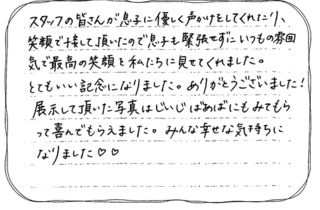 スタッフの皆さんが息子に優しく声かけをしてくれたり、
笑顔で接して頂いたので息子も緊張せずにいつもの雰囲
気で最高の笑顔と私たちに見せてくれました。
とてもいい記念になりました。ありがとうございました！
展示して頂いた写真はじいじばあばにもみてもら
って喜んでもらえました。みんな幸せな気持ちに
なりました♡♡